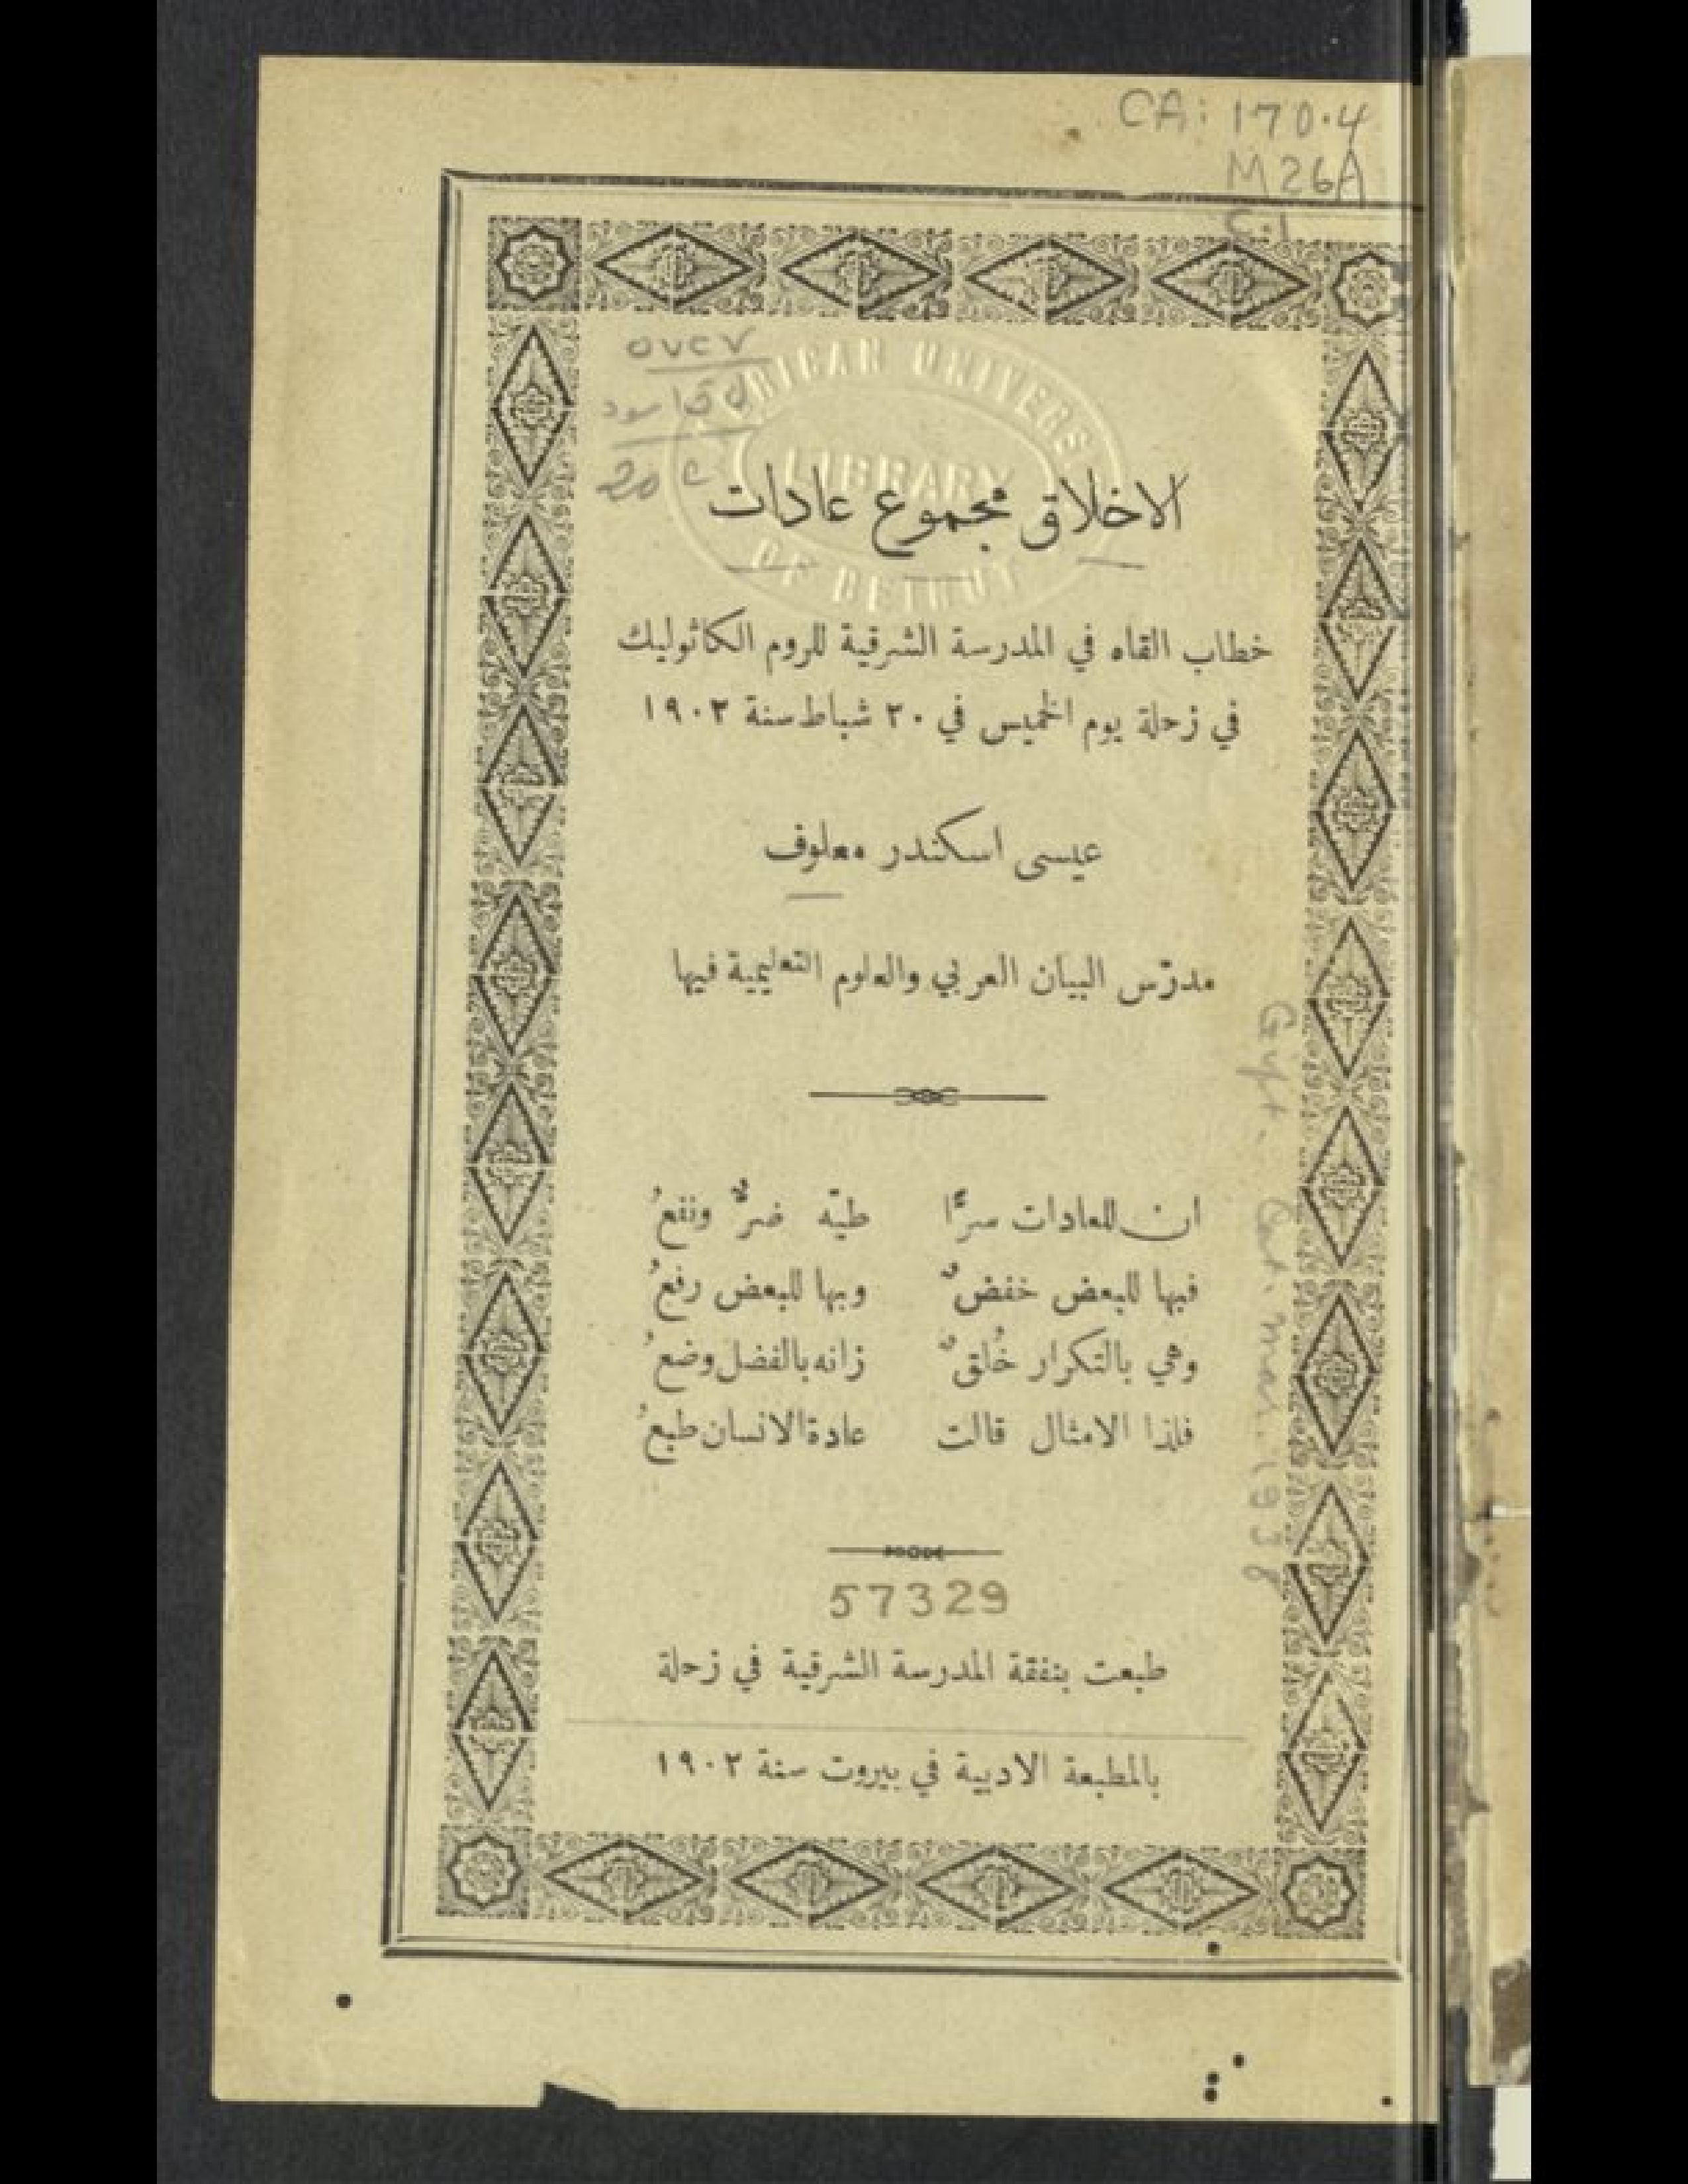 CA: 170.4
M26A
C.1
AMERICAN UNIVERSITY
LIBRARY
OF BEIRUT
الاخلاق مجموع عادات
خطاب القاه في المدرسة الشرقية للروم الكاثوليك
في زحلة يوم الخميس في ٢٠ شباط سنة ١٩٠٢
عيسى اسكندر معلوف
مدرّس البيان العربي والعلوم التعليمية فيها
ان للعادات سرًّا طيّه ضرٌّ ونفعُ
فيها للبعض خفضٌ وبها للبعض رفعُ
وهي بالتكرار خُلقٌ زانه بالفضل وضعُ
فلذا الامثال قالت عادة الانسان طبعُ
57329
طبعت بنفقة المدرسة الشرقية في زحلة
بالمطبعة الادبية في بيروت سنة ١٩٠٢